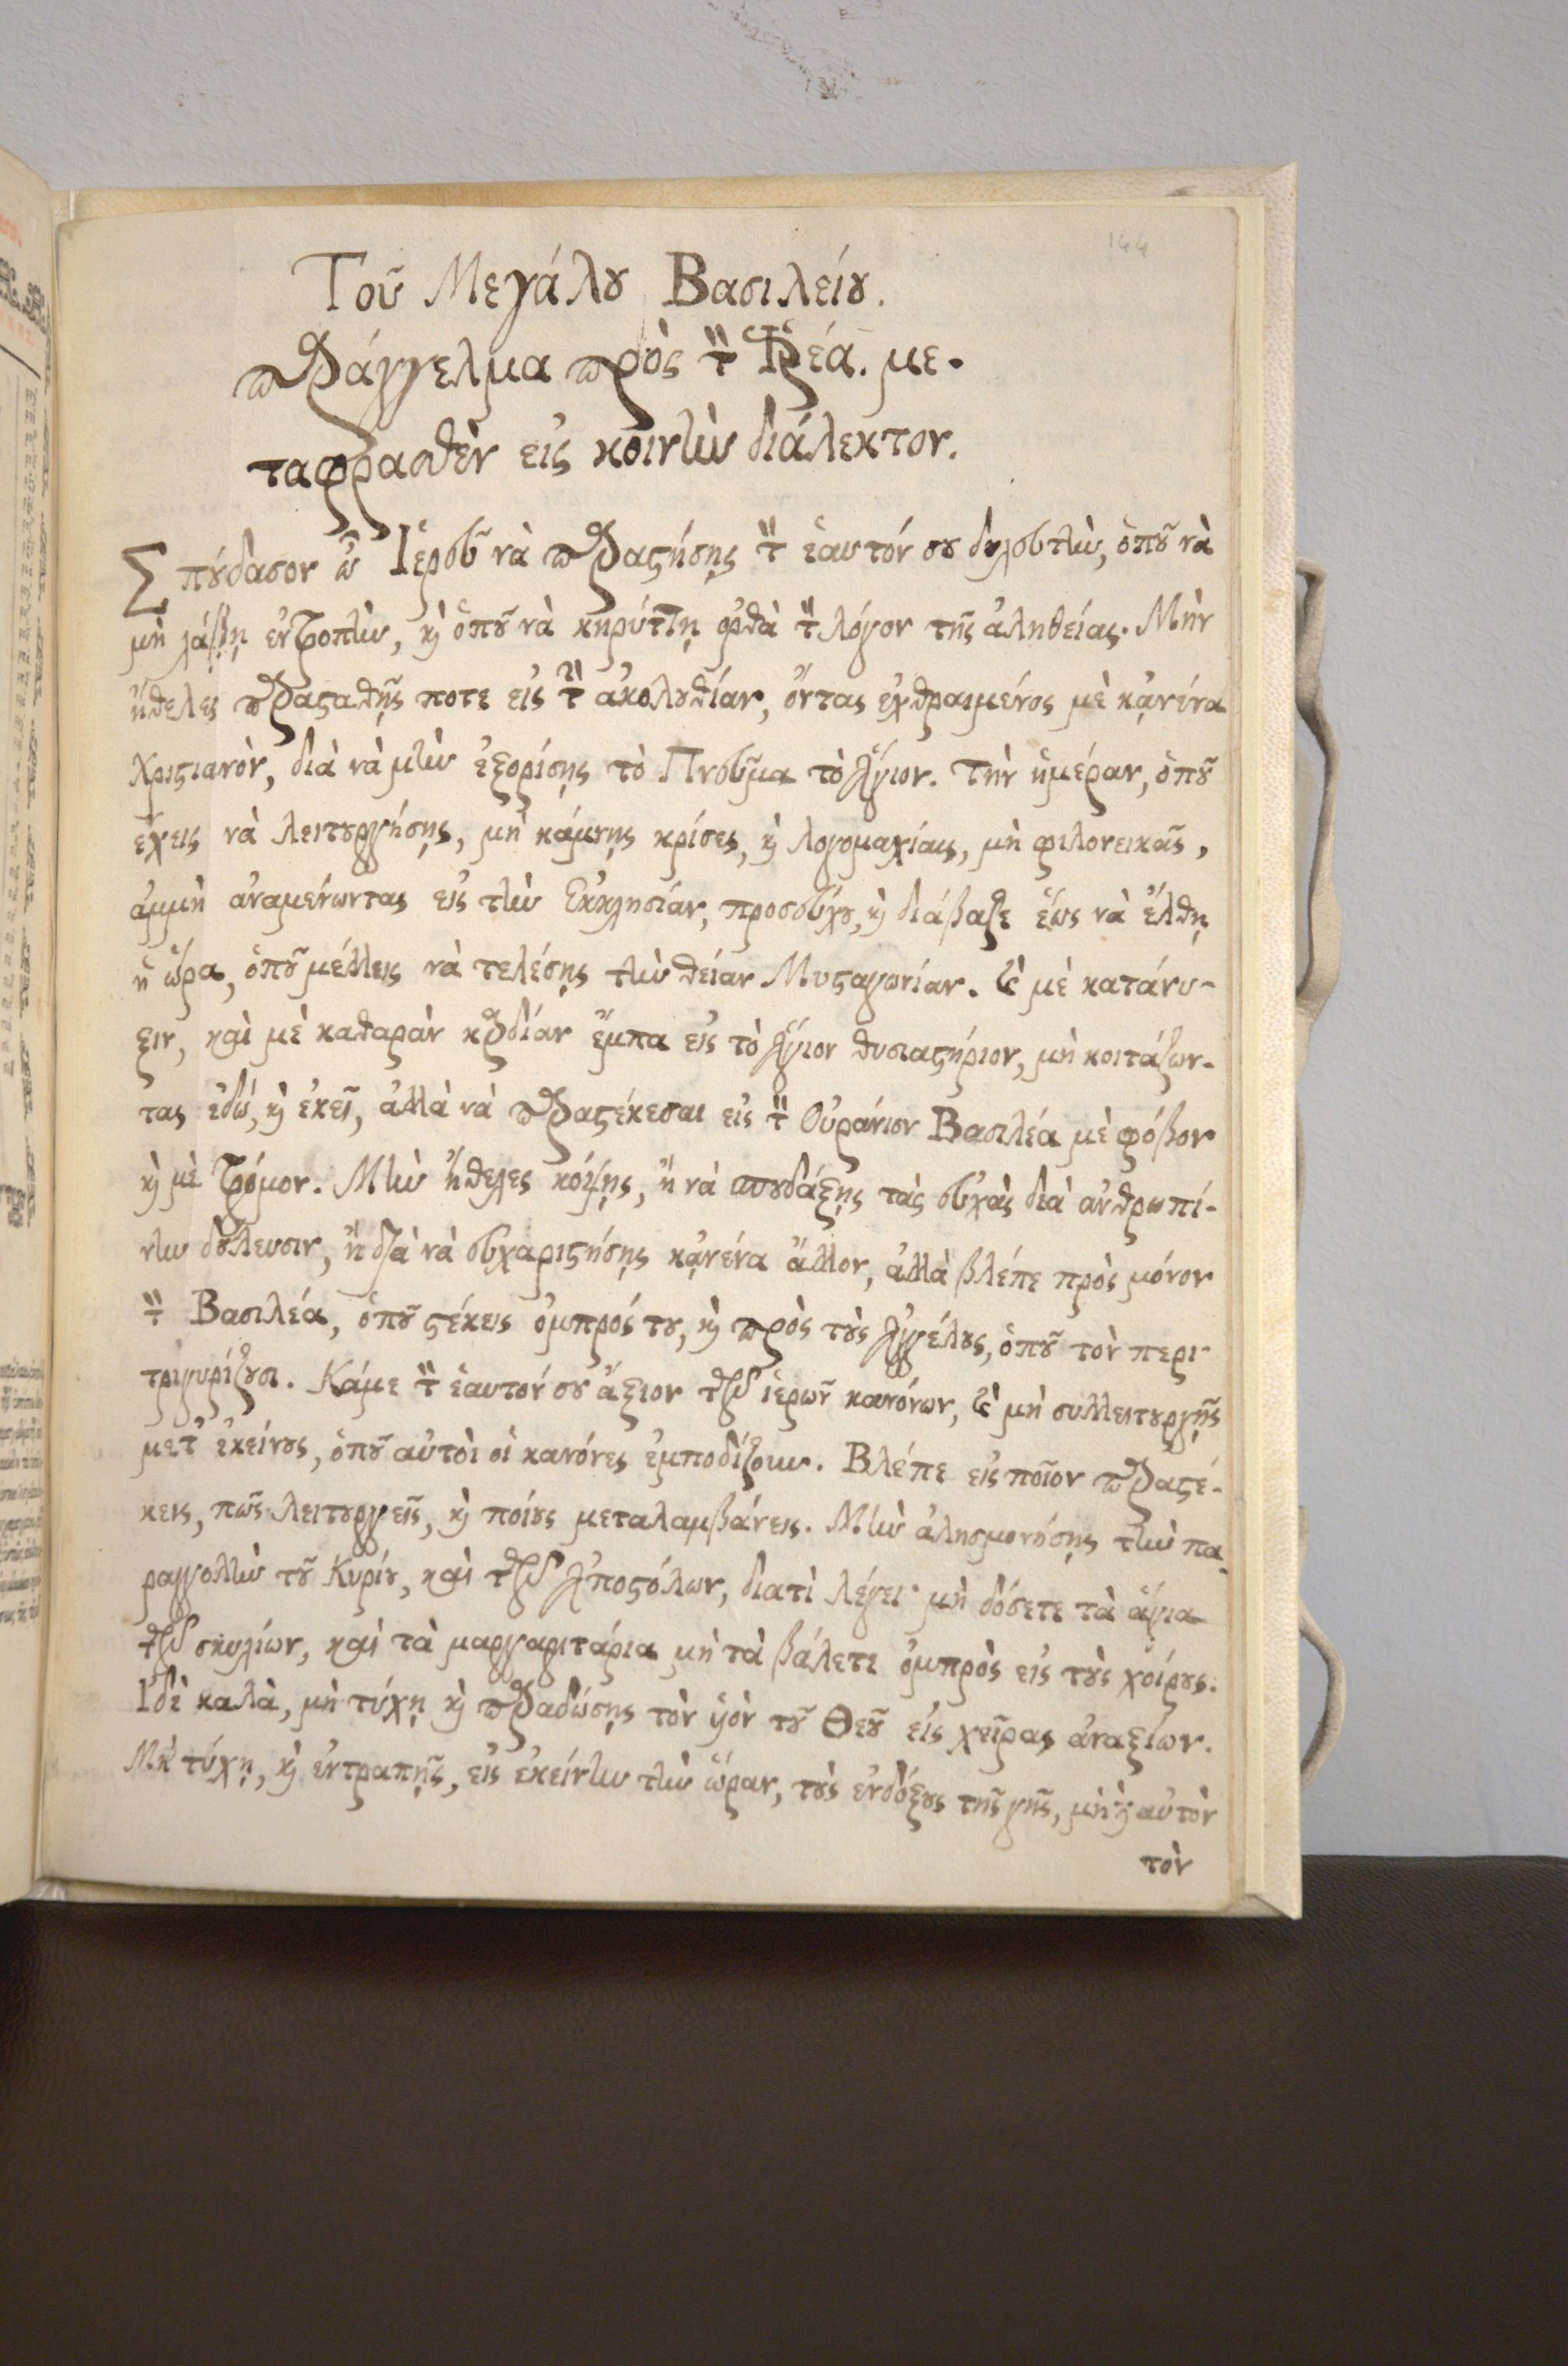 144
Τοῦ Μεγάλȣ Βασιλείȣ.
παράγγελμα πρὸς τὸν Ἱερέα. με-
ταφρασθὲν εἰς κοινὴν διάλεκτον.
Σπȣ́δασον ὦ Ἱερεῦ νὰ παραστήσῃς τὸν ἑαυτόν σȣ δȣλευτὴν, ὁπȣ͂ νὰ
μὴ λάβῃ ἐντροπὴν, κὶ ὁπȣ͂ νὰ κηρύττῃ ὀρθὰ τὸν λόγον τῆς ἀληθείας. Μὴν
ἤθελες παρασταθῇς ποτε εἰς τὴν ἀκολȣθίαν, ὄντας ἐχθραιμένος μὲ κᾀνένα
Χριστιανὸν, διὰ νὰ μὴν ἐξορίσῃς τὸ Πνεῦμα τὸ Ἅγιον. Τὴν ἡμέραν, ὁπȣ͂
ἔχεις νὰ λειτȣργήσῃς, μὴ κάμνῃς κρίσες, κὶ λογομαχίαις, μὴ φιλονεικᾶς,
ἀμμὴ ἀναμενώντας εἰς τὴν Ἐκκλησίαν, προσεύχȣ, κὶ διάβαζε ἕως νὰ ἔλθῃ
ἡ ὥρα, ὁπȣ͂ μέλλεις νὰ τελέσῃς τὴν θείαν Μυσταγωγίαν. ϗ̀ μὲ κατάνυ-
ξιν, καὶ μὲ καθαρὰν καρδίαν ἔμπα εἰς τὸ Ἅγιον θυσιαστήριον, μὴ κοιτάζων-
τας ἐδώ, κὶ ἐκεῖ, ἀλλὰ νὰ παραστέκεσαι εἰς τὸν Οὐράνιον Βασιλέα μὲ φόβον
κὶ μὲ τρόμον. Μὴν ἤθελες κόψῃς, ἢ νὰ σπȣδάξῃς τὰς εὐχὰς διὰ ἀνθρωπί-
νην δȣ́λευσιν, ἢ διὰ νὰ εὐχαριστήσῃς κᾀνένα ἄλλον, ἀλλὰ βλέπε πρὸς μόνον
τὸν Βασιλέα, ὁπȣ͂ στέκεις ὀμπρός τȣ, κὶ πρὸς τȣ̀ς Ἀγγέλȣς, ὁπȣ͂ τὸν περι-
τριγυρίζȣσι. Κάμε τὸν ἑαυτόν σȣ ἄξιον τῶν ἱερῶν κανόνων, ϗ̀ μὴ συλλειτȣργῇς
μετ᾽ ἐκείνȣς, ὁπȣ͂ αὐτοὶ οἱ κανόνες ἐμποδίζουν. Βλέπε εἰς ποῖον παραστέ-
κεις, πῶς λειτȣργεῖς, κὶ ποίȣς μεταλαμβάνεις. Μὴν ἀλησμονήσῃς τὴν πα-
ραγγολὴν τȣ͂ Κυρίȣ, καὶ τῶν Ἀποστόλων, διατὶ λέγει· μὴ δόσετε τὰ ἅγια
τῶν σκυλίων, καὶ τὰ μαργαριτάρια μὴ τὰ βάλετε ὀμπρὸς εἰς τȣ̀ς χοίρȣς.
Ἰδὲ καλὰ, μὴ τύχῃ κὶ παραδώσῃς τὸν ὑὸν τȣ͂ Θεȣ͂ εἰς χεῖρας ἀναξίων.
Μὴ τύχῃ, κὶ ἐντραπῇς, εἰς ἐκείνην τὴν ὥραν, τȣ̀ς ἐνδόξȣς τῆς γῆς, μὴ κὶ αὐτὸν
τὸν